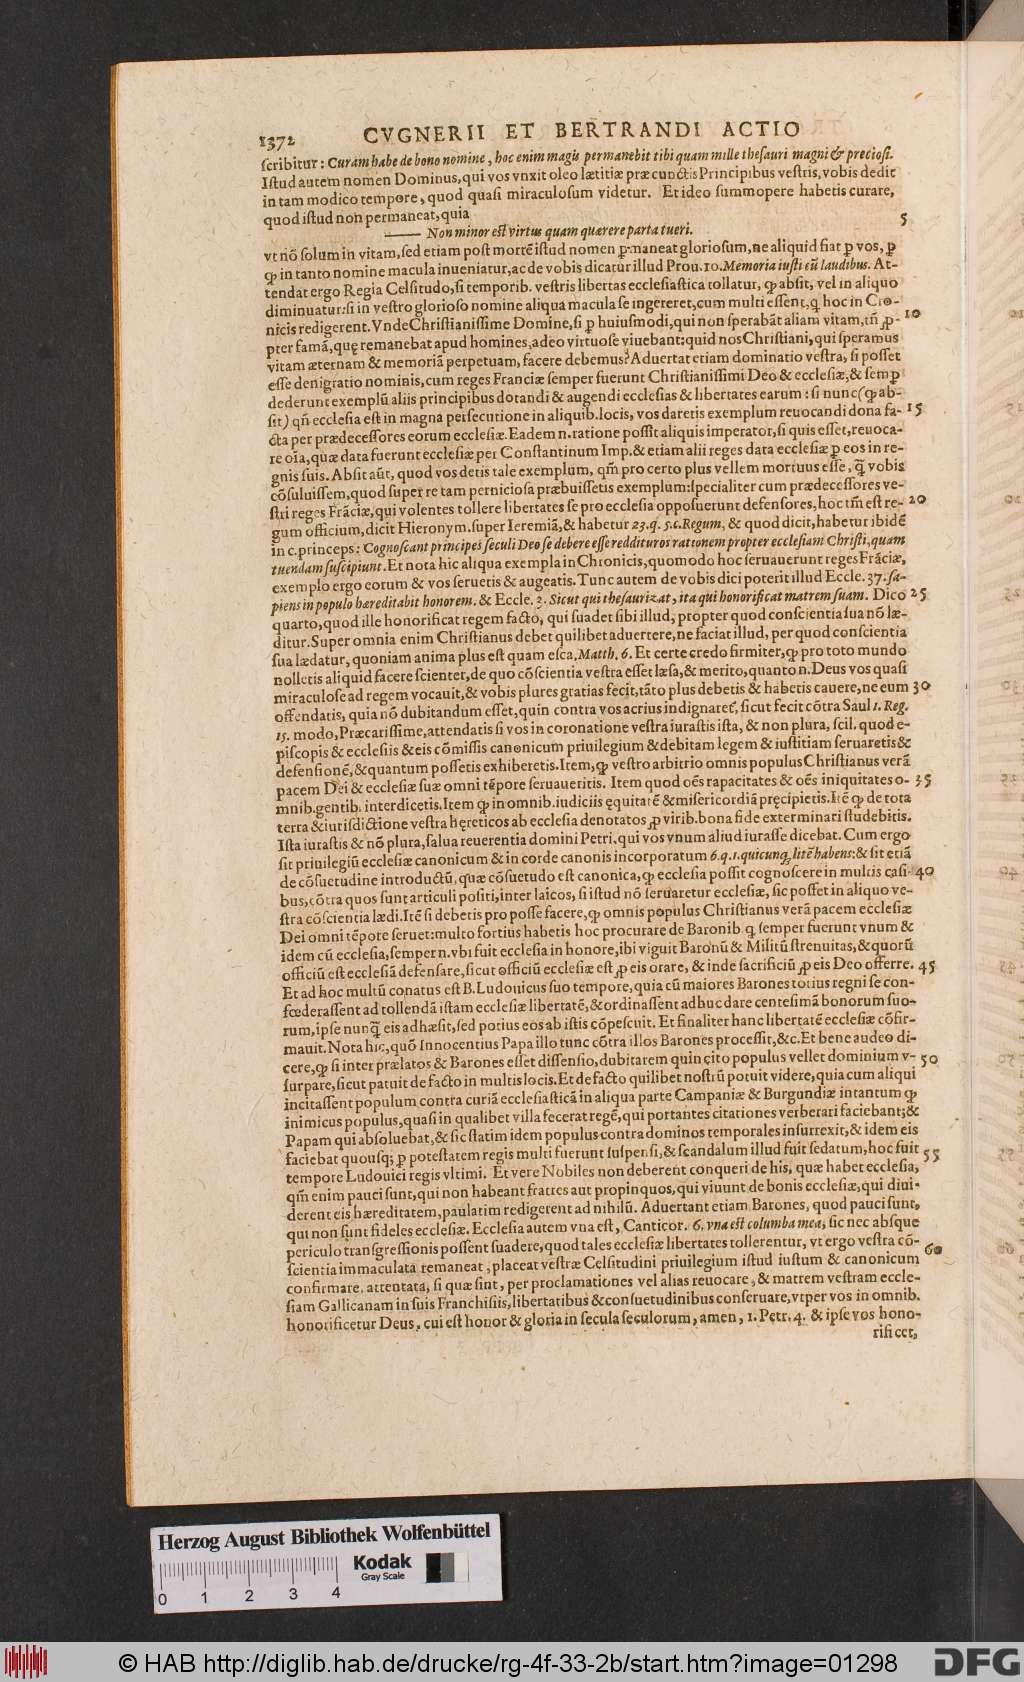 1372 CVGNERII ET BERTRANDI ACTIO
ſcribitur: Curam habe de bono nomine, hoc enim magis permanebit tibi quam mille theſauri magni & precioſi.
Iſtud autem nomen Dominus, qui vos vnxit oleo lætitiæ præ cunctis Principibus veſtris, vobis dedit
in tam modico tempore, quod quaſi miraculoſum videtur. Et ideo ſummopere habetis curare,
quod iſtud non permaneat, quia 5
—— Non minor eſt virtus quam quærere parta tueri.
vt nō ſolum in vitam, ſed etiam poſt mortē iſtud nomen ꝑmaneat glorioſum, ne aliquid fiat ꝑ vos, ꝑ
ꝙ in tanto nomine macula inueniatur, ac de vobis dicatur illud Prou. 10. Memoria iuſti cū laudibus. At-
tendat ergo Regia Celſitudo, ſi temporib. veſtris libertas eccleſiaſtica tollatur, ꝙ abſit, vel in aliquo
diminuatur: ſi in veſtro glorioſo nomine aliqua macula ſe ingereret, cum multi eſſent, q̨ hoc in Cro-
nicis redigerent. Vnde Chriſtianiſſime Domine, ſi ꝓ huiuſmodi, qui non ſperabāt aliam vitam, tñ ꝓ- 10
pter famā, quę remanebat apud homines, adeo virtuoſe viuebant: quid nos Chriſtiani, qui ſperamus
vitam æternam & memoriā perpetuam, facere debemus? Aduertat etiam dominatio veſtra, ſi poſſet
eſſe denigratio nominis, cum reges Franciæ ſemper fuerunt Chriſtianiſſimi Deo & eccleſiæ, & ſemꝑ
dederunt exemplū aliis principibus dotandi & augendi eccleſias & libertates earum: ſi nunc (ꝙ ab-
ſit) qñ eccleſia eſt in magna perſecutione in aliquib. locis, vos daretis exemplum reuocandi dona fa- 15
cta per prædeceſſores eorum eccleſiæ. Eadem n. ratione poſſit aliquis imperator, ſi quis eſſet, reuoca-
re oīa, quæ data fuerunt eccleſiæ per Conſtantinum Imp. & etiam alii reges data eccleſiæ ꝑ eos in re-
gnis ſuis. Abſit aūt, quod vos detis tale exemplum, qm̄ pro certo plus vellem mortuus eſſe, q̃ vobis
cōſuluiſſem, quod ſuper re tam pernicioſa præbuiſſetis exemplum: ſpecialiter cum prædeceſſores ve-
ſtri reges Frāciæ, qui volentes tollere libertates ſe pro eccleſia oppoſuerunt defenſores, hoc tm̄ eſt re- 20
gum officium, dicit Hieronym. ſuper Ieremiā, & habetur 23. q. 5. c. Regum, & quod dicit, habetur ibidē
in c. princeps: Cognoſcant principes ſeculi Deo ſe debere eſſe reddituros rationem propter eccleſiam Chriſti, quam
tuendam ſuſcipiunt. Et nota hic aliqua exempla in Chronicis, quomodo hoc ſeruauerunt reges Frāciæ,
exemplo ergo eorum & vos ſeruetis & augeatis. Tunc autem de vobis dici poterit illud Eccle. 37. ſa-
piens in populo hæreditabit honorem. & Eccle. 3. Sicut qui theſaurizat, ita qui honorificat matrem ſuam. Dico 25
quarto, quod ille honorificat regem facto, qui ſuadet ſibi illud, propter quod conſcientia ſua nō læ-
ditur. Super omnia enim Chriſtianus debet quilibet aduertere, ne faciat illud, per quod conſcientia
ſua lædatur, quoniam anima plus eſt quam eſca, Matth. 6. Et certe credo firmiter, ꝙ pro toto mundo
nolletis aliquid facere ſcienter, de quo cōſcientia veſtra eſſet læſa, & merito, quanto n. Deus vos quaſi
miraculoſe ad regem vocauit, & vobis plures gratias fecit, tāto plus debetis & habetis cauere, ne eum 30
offendatis, quia nō dubitandum eſſet, quin contra vos acrius indignaret̃, ſicut fecit cōtra Saul 1. Reg.
15. modo, Præcariſſime, attendatis ſi vos in coronatione veſtra iuraſtis iſta, & non plura, ſcil. quod e-
piſcopis & eccleſiis & eis cōmiſſis canonicum priuilegium & debitam legem & iuſtitiam ſeruaretis &
defenſionē, & quantum poſſetis exhiberetis. Item, ꝙ veſtro arbitrio omnis populus Chriſtianus verā
pacem Dei & eccleſiæ ſuæ omni tēpore ſeruaueritis. Item quod oēs rapacitates & oēs iniquitates o- 35
mnib. gentib. interdicetis. Item ꝙ in omnib. iudiciis ęquitatē & miſericordiā pręcipietis. Itē ꝙ de tota
terra & iuriſdictione veſtra hęreticos ab eccleſia denotatos ꝓ virib. bona fide exterminari ſtudebitis.
Iſta iuraſtis & nō plura, ſalua reuerentia domini Petri, qui vos vnum aliud iuraſſe dicebat. Cum ergo
ſit priuilegiū eccleſiæ canonicum & in corde canonis incorporatum 6. q. 1. quicunq; litē habens: & ſit etiā
de cōſuetudine introductū, quæ cōſuetudo eſt canonica, ꝙ eccleſia poſſit cognoſcere in multis caſi- 40
bus, cōtra quos ſunt articuli poſiti, inter laicos, ſi iſtud nō ſeruaretur eccleſiæ, ſic poſſet in aliquo ve-
ſtra cōſcientia lædi. Itē ſi debetis pro poſſe facere, ꝙ omnis populus Chriſtianus verā pacem eccleſiæ
Dei omni tēpore ſeruet: multo fortius habetis hoc procurare de Baronib. q̨ ſemper fuerunt vnum &
idem cū eccleſia, ſemper n. vbi fuit eccleſia in honore, ibi viguit Baronū & Militū ſtrenuitas, & quorū
officiū eſt eccleſiā defenſare, ſicut officiū eccleſiæ eſt ꝓ eis orare, & inde ſacrificiū ꝓ eis Deo offerre. 45
Et ad hoc multū conatus eſt B. Ludouicus ſuo tempore, quia cū maiores Barones totius regni ſe con-
fœderaſſent ad tollendā iſtam eccleſiæ libertatē, & ordinaſſent adhuc dare centeſimā bonorum ſuo-
rum, ipſe nunq̃ eis adhæſit, ſed potius eos ab iſtis cōpeſcuit. Et finaliter hanc libertatē eccleſiæ cōfir-
mauit. Nota hic, quō Innocentius Papa illo tunc cōtra illos Barones proceſſit, &c. Et bene audeo di-
cere, ꝙ ſi inter prælatos & Barones eſſet diſſenſio, dubitarem quin cito populus vellet dominium v- 50
ſurpare, ſicut patuit de facto in multis locis. Et de facto quilibet noſtrū potuit videre, quia cum aliqui
incitaſſent populum contra curiā eccleſiaſticā in aliqua parte Campaniæ & Burgundiæ in tantum ꝙ
inimicus populus, quaſi in qualibet villa fecerat regē, qui portantes citationes verberari faciebant; &
Papam qui abſoluebat, & ſic ſtatim idem populus contra dominos temporales inſurrexit, & idem eis
faciebat quouſq; ꝑ poteſtatem regis multi fuerunt ſuſpenſi, & ſcandalum illud fuit ſedatum, hoc fuit 55
tempore Ludouici regis vltimi. Et vere Nobiles non deberent conqueri de his, quæ habet eccleſia,
qm̄ enim pauci ſunt, qui non habeant fratres aut propinquos, qui viuunt de bonis eccleſiæ, qui diui-
derent eis hæreditatem, paulatim redigerent ad nihilū. Aduertant etiam Barones, quod pauci ſunt,
qui non ſunt fideles eccleſiæ. Eccleſia autem vna eſt, Canticor. 6. vna eſt columba mea, ſic nec abſque
periculo tranſgreſſionis poſſent ſuadere, quod tales eccleſiæ libertates tollerentur, vt ergo veſtra cō- 60
ſcientia immaculata remaneat, placeat veſtræ Celſitudini priuilegium iſtud iuſtum & canonicum
confirmare, attentata, ſi quæ ſint, per proclamationes vel alias reuocare, & matrem veſtram eccle-
ſiam Gallicanam in ſuis Franchiſiis, libertatibus & conſuetudinibus conſeruare, vt per vos in omnib.
honorificetur Deus, cui eſt honor & gloria in ſecula ſeculorum, amen, 1. Petr. 4. & ipſe vos hono-
rificet,
Herzog August Bibliothek Wolfenbüttel
Kodak
Gray Scale
0 1 2 3 4
© HAB http://diglib.hab.de/drucke/rg-4f-33-2b/start.htm?image=01298 DFG